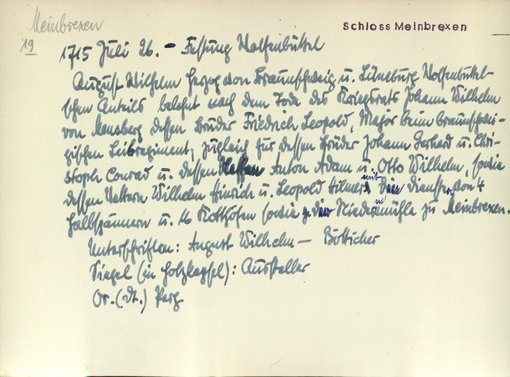 Meinbrexen
Schloss Meinbrexen
19
1715 Juli 26. - Festung Wolfenbüttel
August Wilhelm Herzog von Braunschweig u. Lüneburg Wolfenbüttel-
schen Anteils belehnt nach dem Tode des Kriegsrats Johann Wilhelm
von Mansberg dessen Bruder Friedrich Leopold, Major beim braunschwei-
gischen Leibregiment, zugleich für dessen Brüder Johann Gerhard u. Chri-
stoph Conrad u. dessen Neffen Anton Adam u. Otto Wilhelm, sowie
dessen Vettern Wilhelm Hinrich u. Leopold Hilmer mit den Diensten von 4
Halbspännern u. 14 Kothöfen sowie der Niedermühle zu Meinbrexen.
Unterschriften: August Wilhelm - Bötticher
Siegel (in Holzkapsel): Aussteller
Or. (dt.) Perg